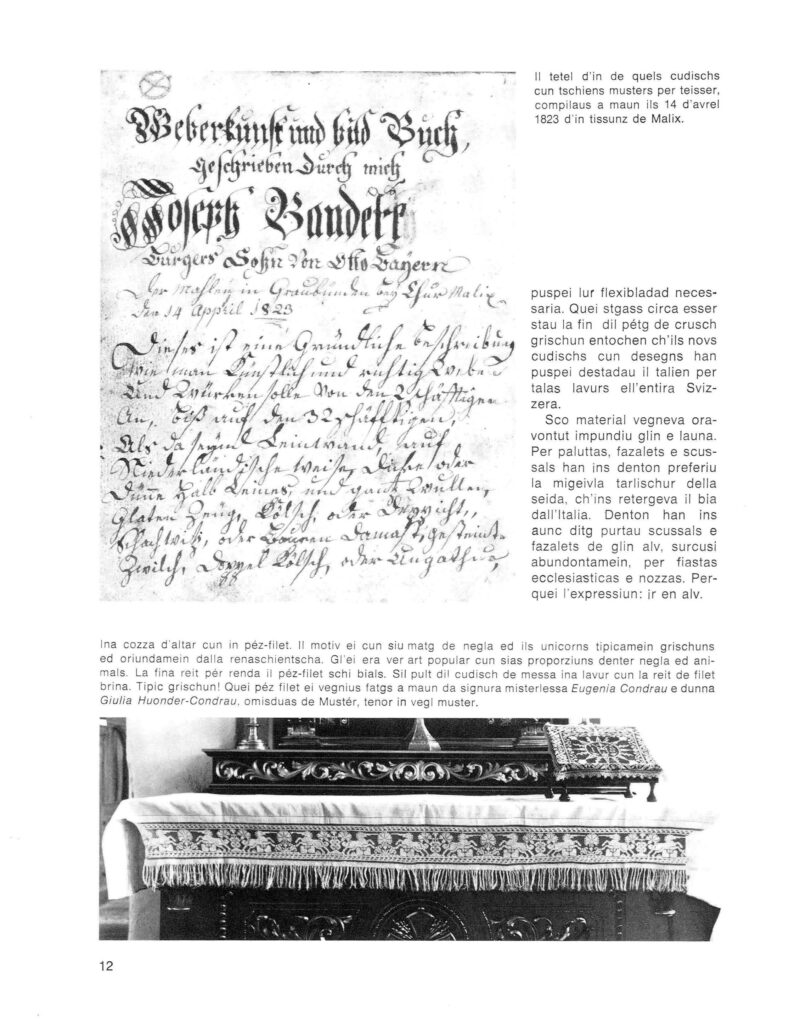 Il tetel d'in de quels cudischs
cun tschiens musters per teisser,
compilaus a maun ils 14 d'avrel
1823 d'in tissunz de Malix.
Weberkunst und bild Buch,
geschrieben Durch mich
Joseph
Burgers Sohn Von Otto Bayern
Der Mahlen in Graubünden bey Chur Malix
Den 14 April 1823
Dieses ist eine Gründliche beschreibung
wie man Künstlich und richtig
Und Würken solle Von den 2 schäfftigen
An, biß auf den 32 schäfftigen,
Als da seynd Leintwand, auf
Niederländische weise, Dicke oder
Dünne Halb Leines, und gantz Wullen,
Glaten Zeug, Kölsch oder
oder Bauren Damast, gesteinte
Zwilch, Doppel Kölsch, oder
puspei lur flexibladad neces-
saria. Quei stgass circa esser
stau la fin dil pétg de crusch
grischun entochen ch'ils novs
cudischs cun desegns han
puspei destadau il talien per
talas lavurs ell'entira Sviz-
zera.
Sco material vegneva ora-
vontut impundiu glin e launa.
Per paluttas, fazalets e scus-
sals han ins denton preferiu
la migeivla tarlischur della
seida, ch'ins retergeva il bia
dall'Italia. Denton han ins
aunc ditg purtau scussals e
fazalets de glin alv, surcusi
abundontamein, per fiastas
ecclesiasticas e nozzas. Per-
quei l'expressiun: ir en alv.
Ina cozza d'altar cun in péz-filet. Il motiv ei cun siu matg de negla ed ils unicorns tipicamein grischuns
ed oriundamein dalla renaschientscha. Gl'ei era ver art popular cun sias proporziuns denter negla ed ani-
mals. La fina reit pér renda il péz-filet schi bials. Sil pult dil cudisch de messa ina lavur cun la reit de filet
brina. Tipic grischun! Quei péz filet ei vegnius fatgs a maun da signura misterlessa Eugenia Condrau e dunna
Giulia Huonder-Condrau, omisduas de Mustér, tenor in vegl muster.
12